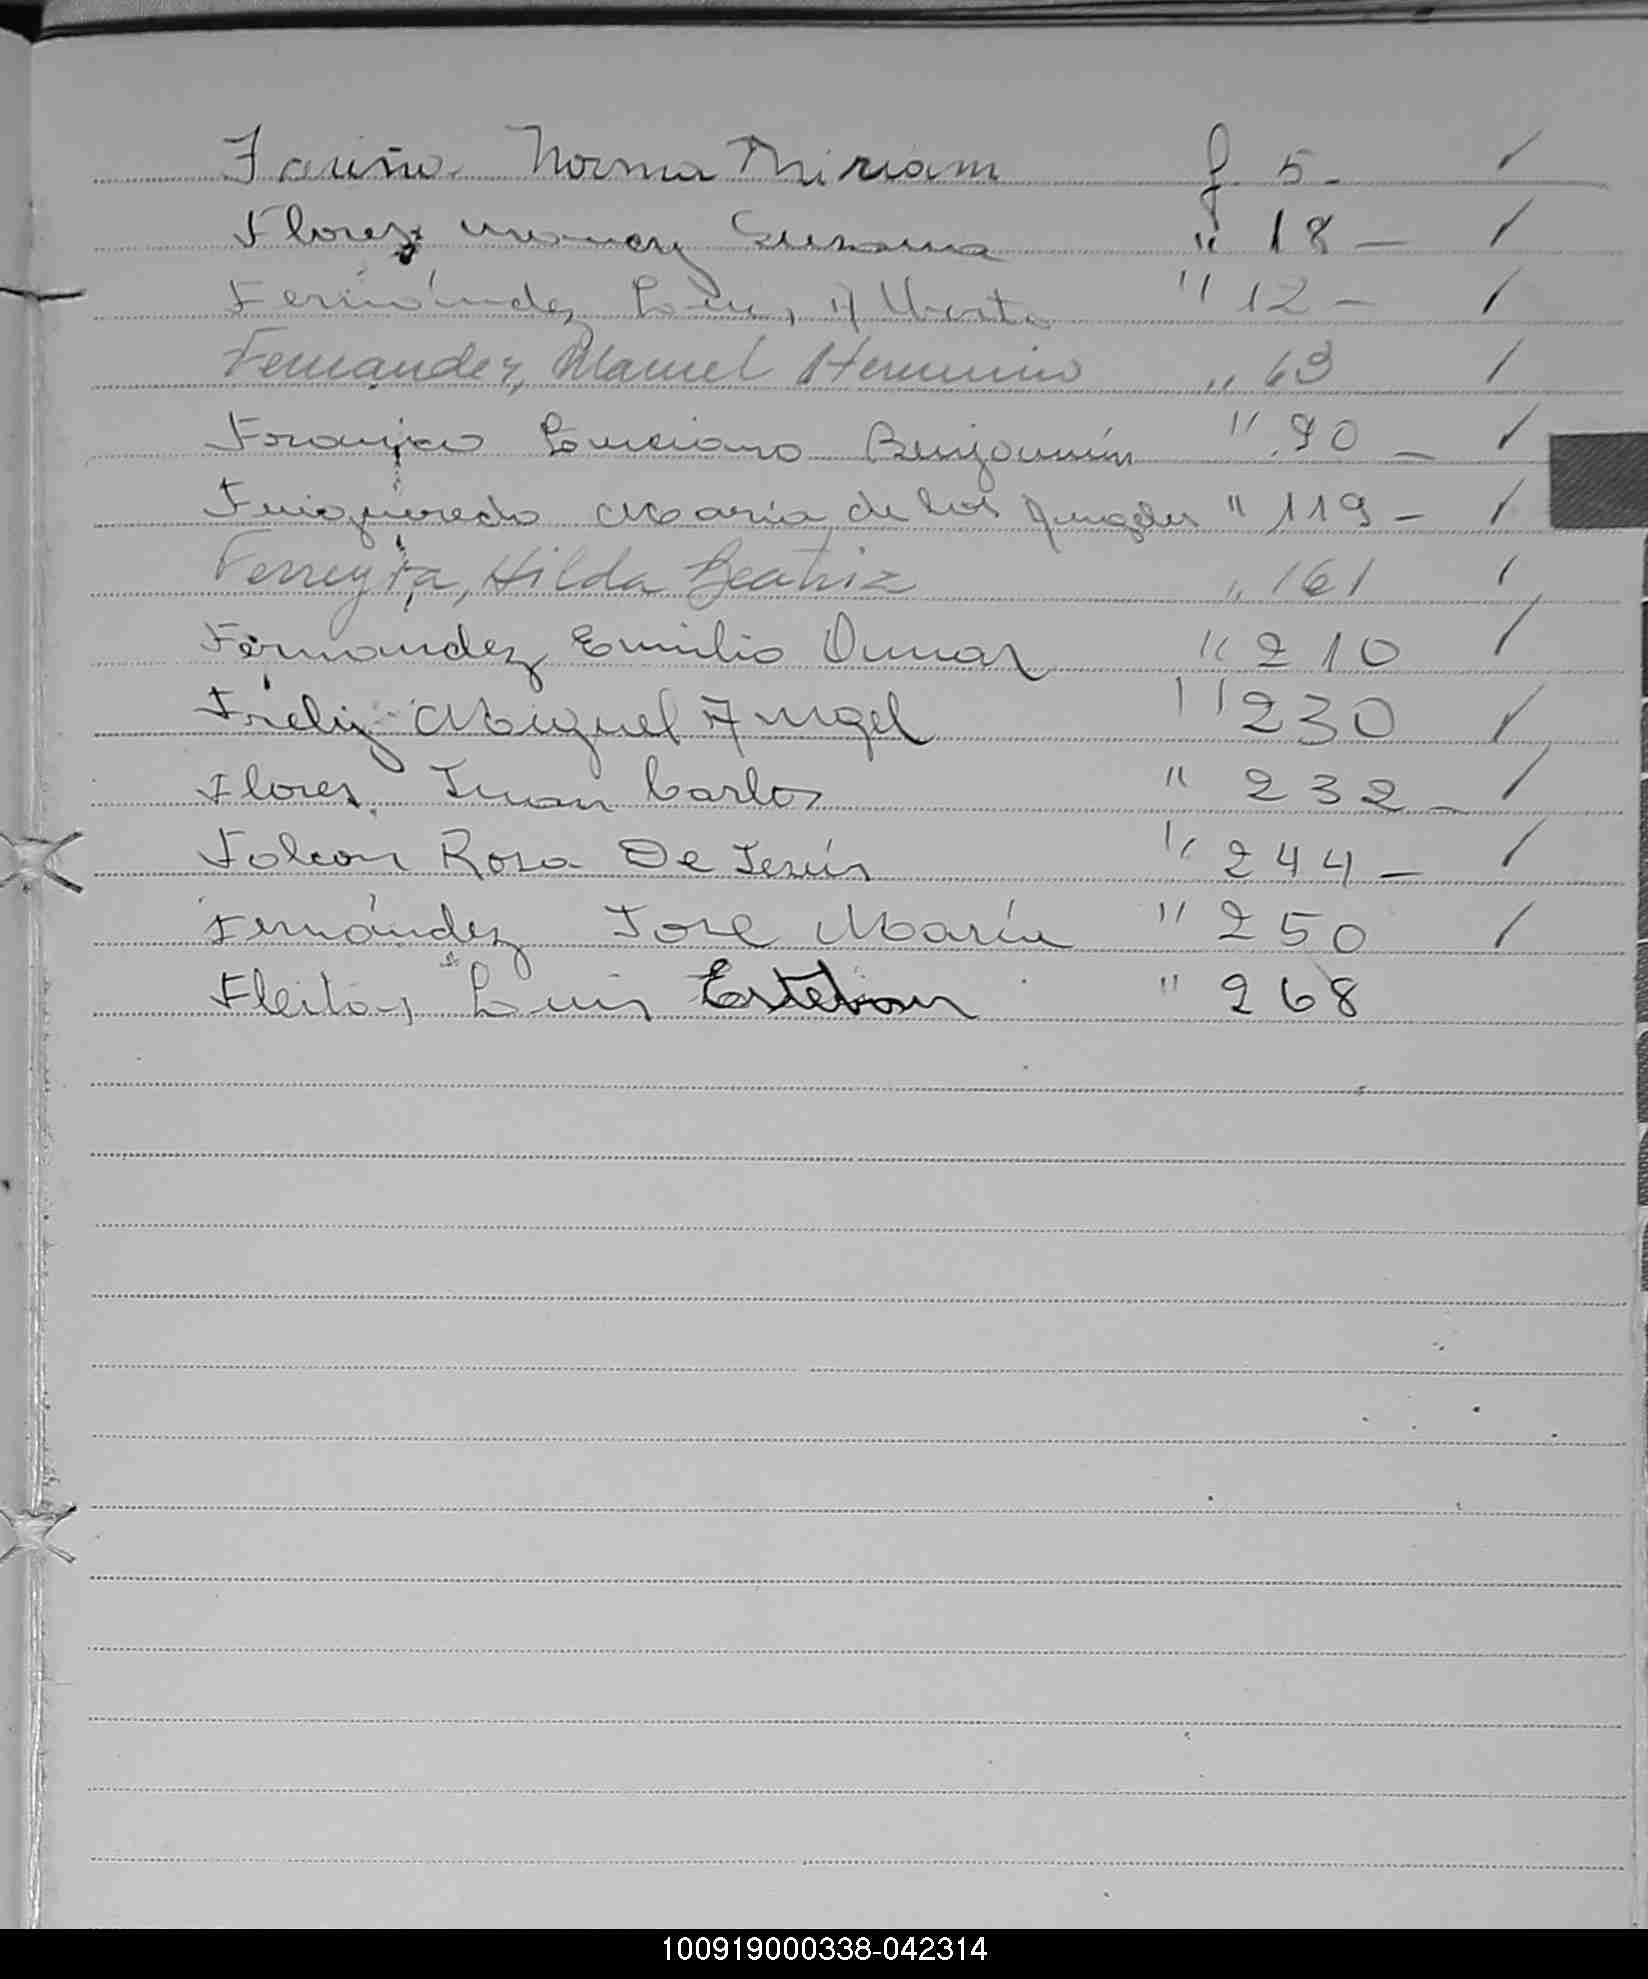 Fariña Norma Miriam f 5 -
Flores Nancy Susana " 18 -
Fernández Luis Alberto " 12 -
Fernandez, Manuel Herminio " 63
Franjco Luciano Benjamín " 90 -
Fuiqueredo María de los Angeles " 119 -
Ferreyra, Hilda Beatriz " 161
Fernandez Emilio Omar " 210
Freliz Miguel Angel " 230
Flores Juan Carlos " 232 -
Falcon Rosa De Jesús " 244 -
Fernández José María " 250
Fleitas Luis Esteban " 268
100919000338-042314